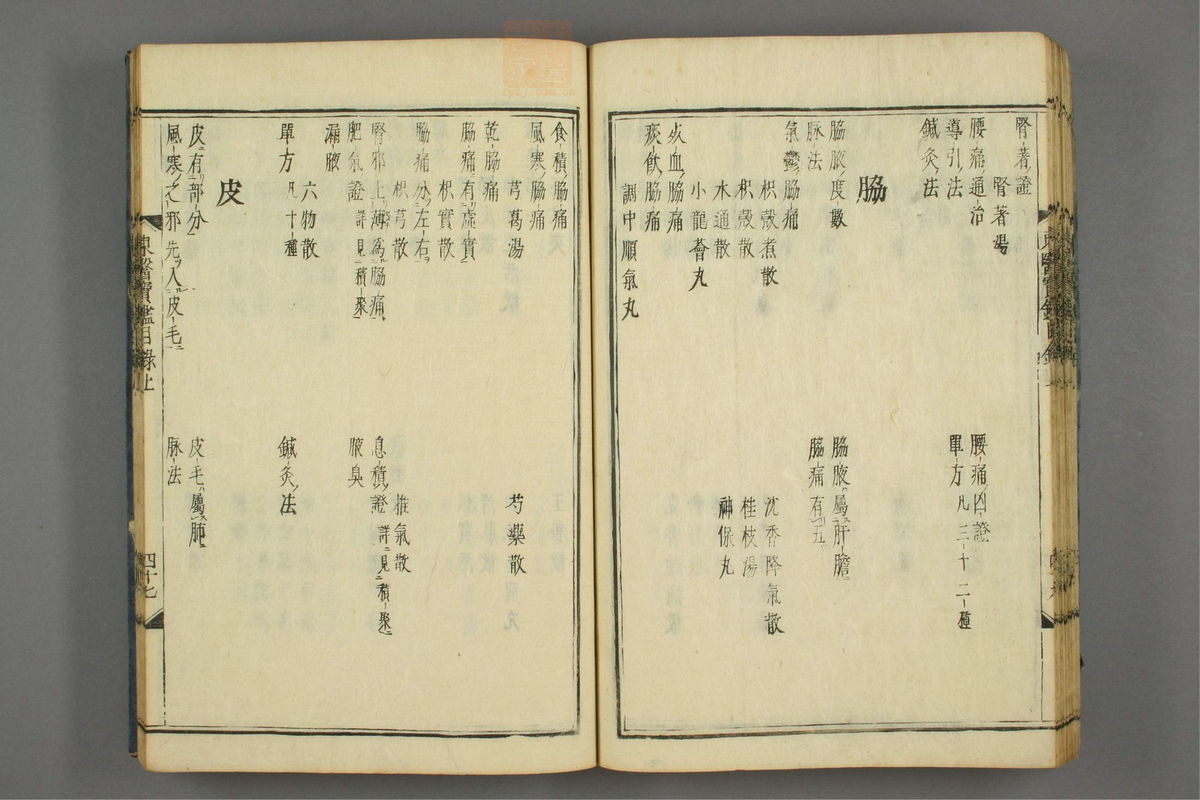 腎著證
腎著湯
腰痛通治
腰痛凶證
導引法
單方凡三十二種
鍼灸法
脇
脇腋度數
脇腋屬肝膽
脉法
脇痛有五
氣鬱脇痛
枳殼煮散
沈香降氣散
枳殼散
桂枝湯
木通散
神保丸
小龍薈丸
死血脇痛
痰飲脇痛
調中順氣丸
食積脇痛
風寒脇痛
芎葛湯
芍藥散
乾脇痛
脇痛有虛實
枳實散
脇痛分左右
枳芎散
推氣散
腎邪上薄爲脇痛
息積證 詳見積聚
肥氣證 詳見積聚
腋臭
漏腋
六物散
單方凡十種
鍼灸法
皮
皮有部分
皮毛屬肺
風寒之邪先入皮毛
脉法
東醫寶鑑目錄上
四十七